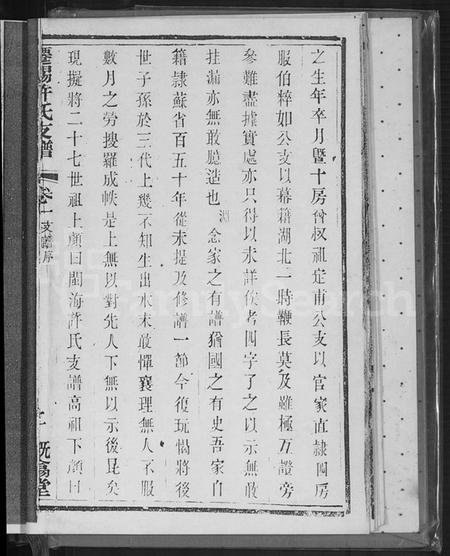 之生年卒月暨十房曾叔祖定甫公支以官家直隸四房
服伯粹如公支以幕籍湖北一時鞭長莫及雖極互證旁
參難盡據實處亦只得以未詳俟考四字了之以示無敢
挂漏亦無敢臆造也 淵 念家之有譜猶國之有史吾家自
籍隸蘇省百五十年從未提及修譜一節今復玩愒將後
世子孫於三代上幾不知生出水木敢憚襄理無人不服
數月之勞搜羅成帙是上無以對先人下無以示後昆矣
現擬將二十七世祖上顏曰閩海許氏支譜高祖下顏曰
遷錫許氏支譜 卷一 支譜序
七 既翕堂
FamilySearch